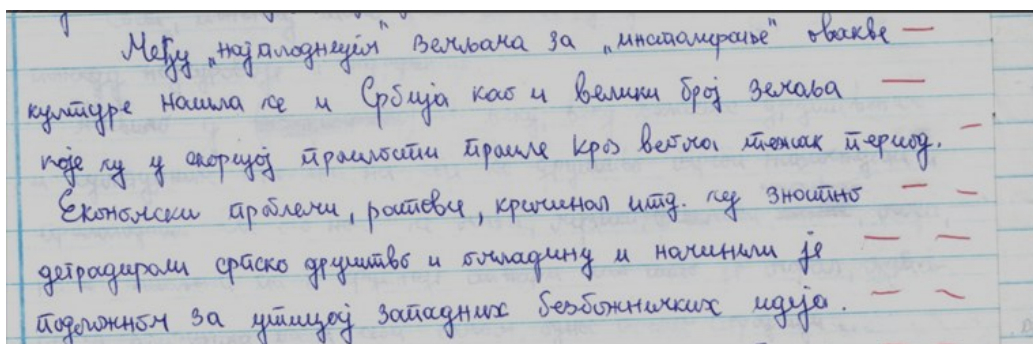 Међу „најплоднијим" земљама за „инсталирање" овакве
културе нашла се и Србија као и велики број земаља
које су у скоријој прошлости прошле кроз веома тежак период.
Економски проблеми, ратови, криминал итд. су знатно
деградирали српско друштво и омладину и начинили је
подложном за утицај западних безбожничких идеја.